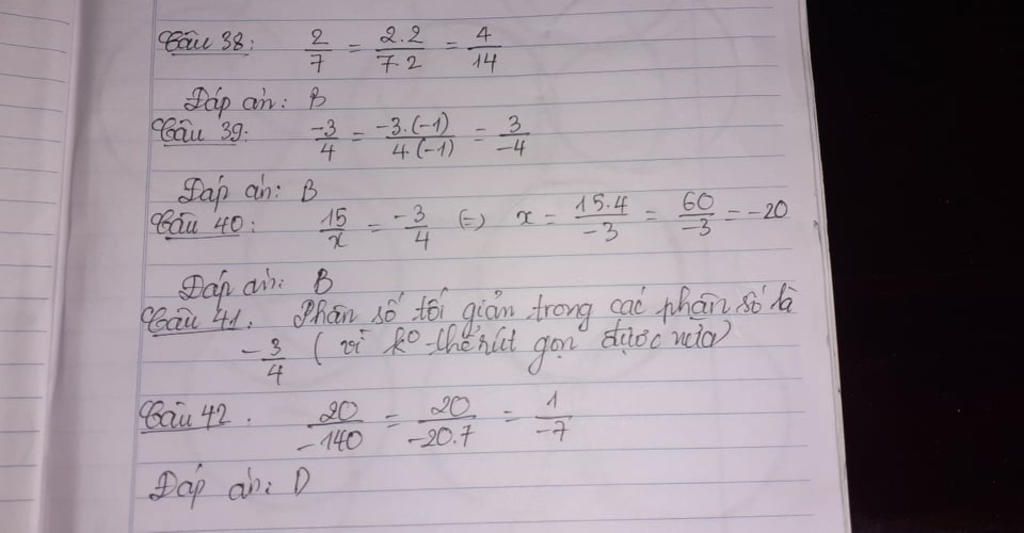 Câu 38: 2/7 = 2.2/7.2 = 4/14
Đáp án: B
Câu 39: -3/4 = -3.(-1)/4.(-1) = 3/-4
Đáp án: B
Câu 40: 15/x = -3/4 (=) x = 15.4/-3 = 60/-3 = -20
Đáp án: B
Câu 41. Phân số tối giản trong các phân số là
-3/4 ( vì ko thể rút gọn được nữa)
Câu 42. 20/-140 = 20/-20.7 = 1/-7
Đáp án: D